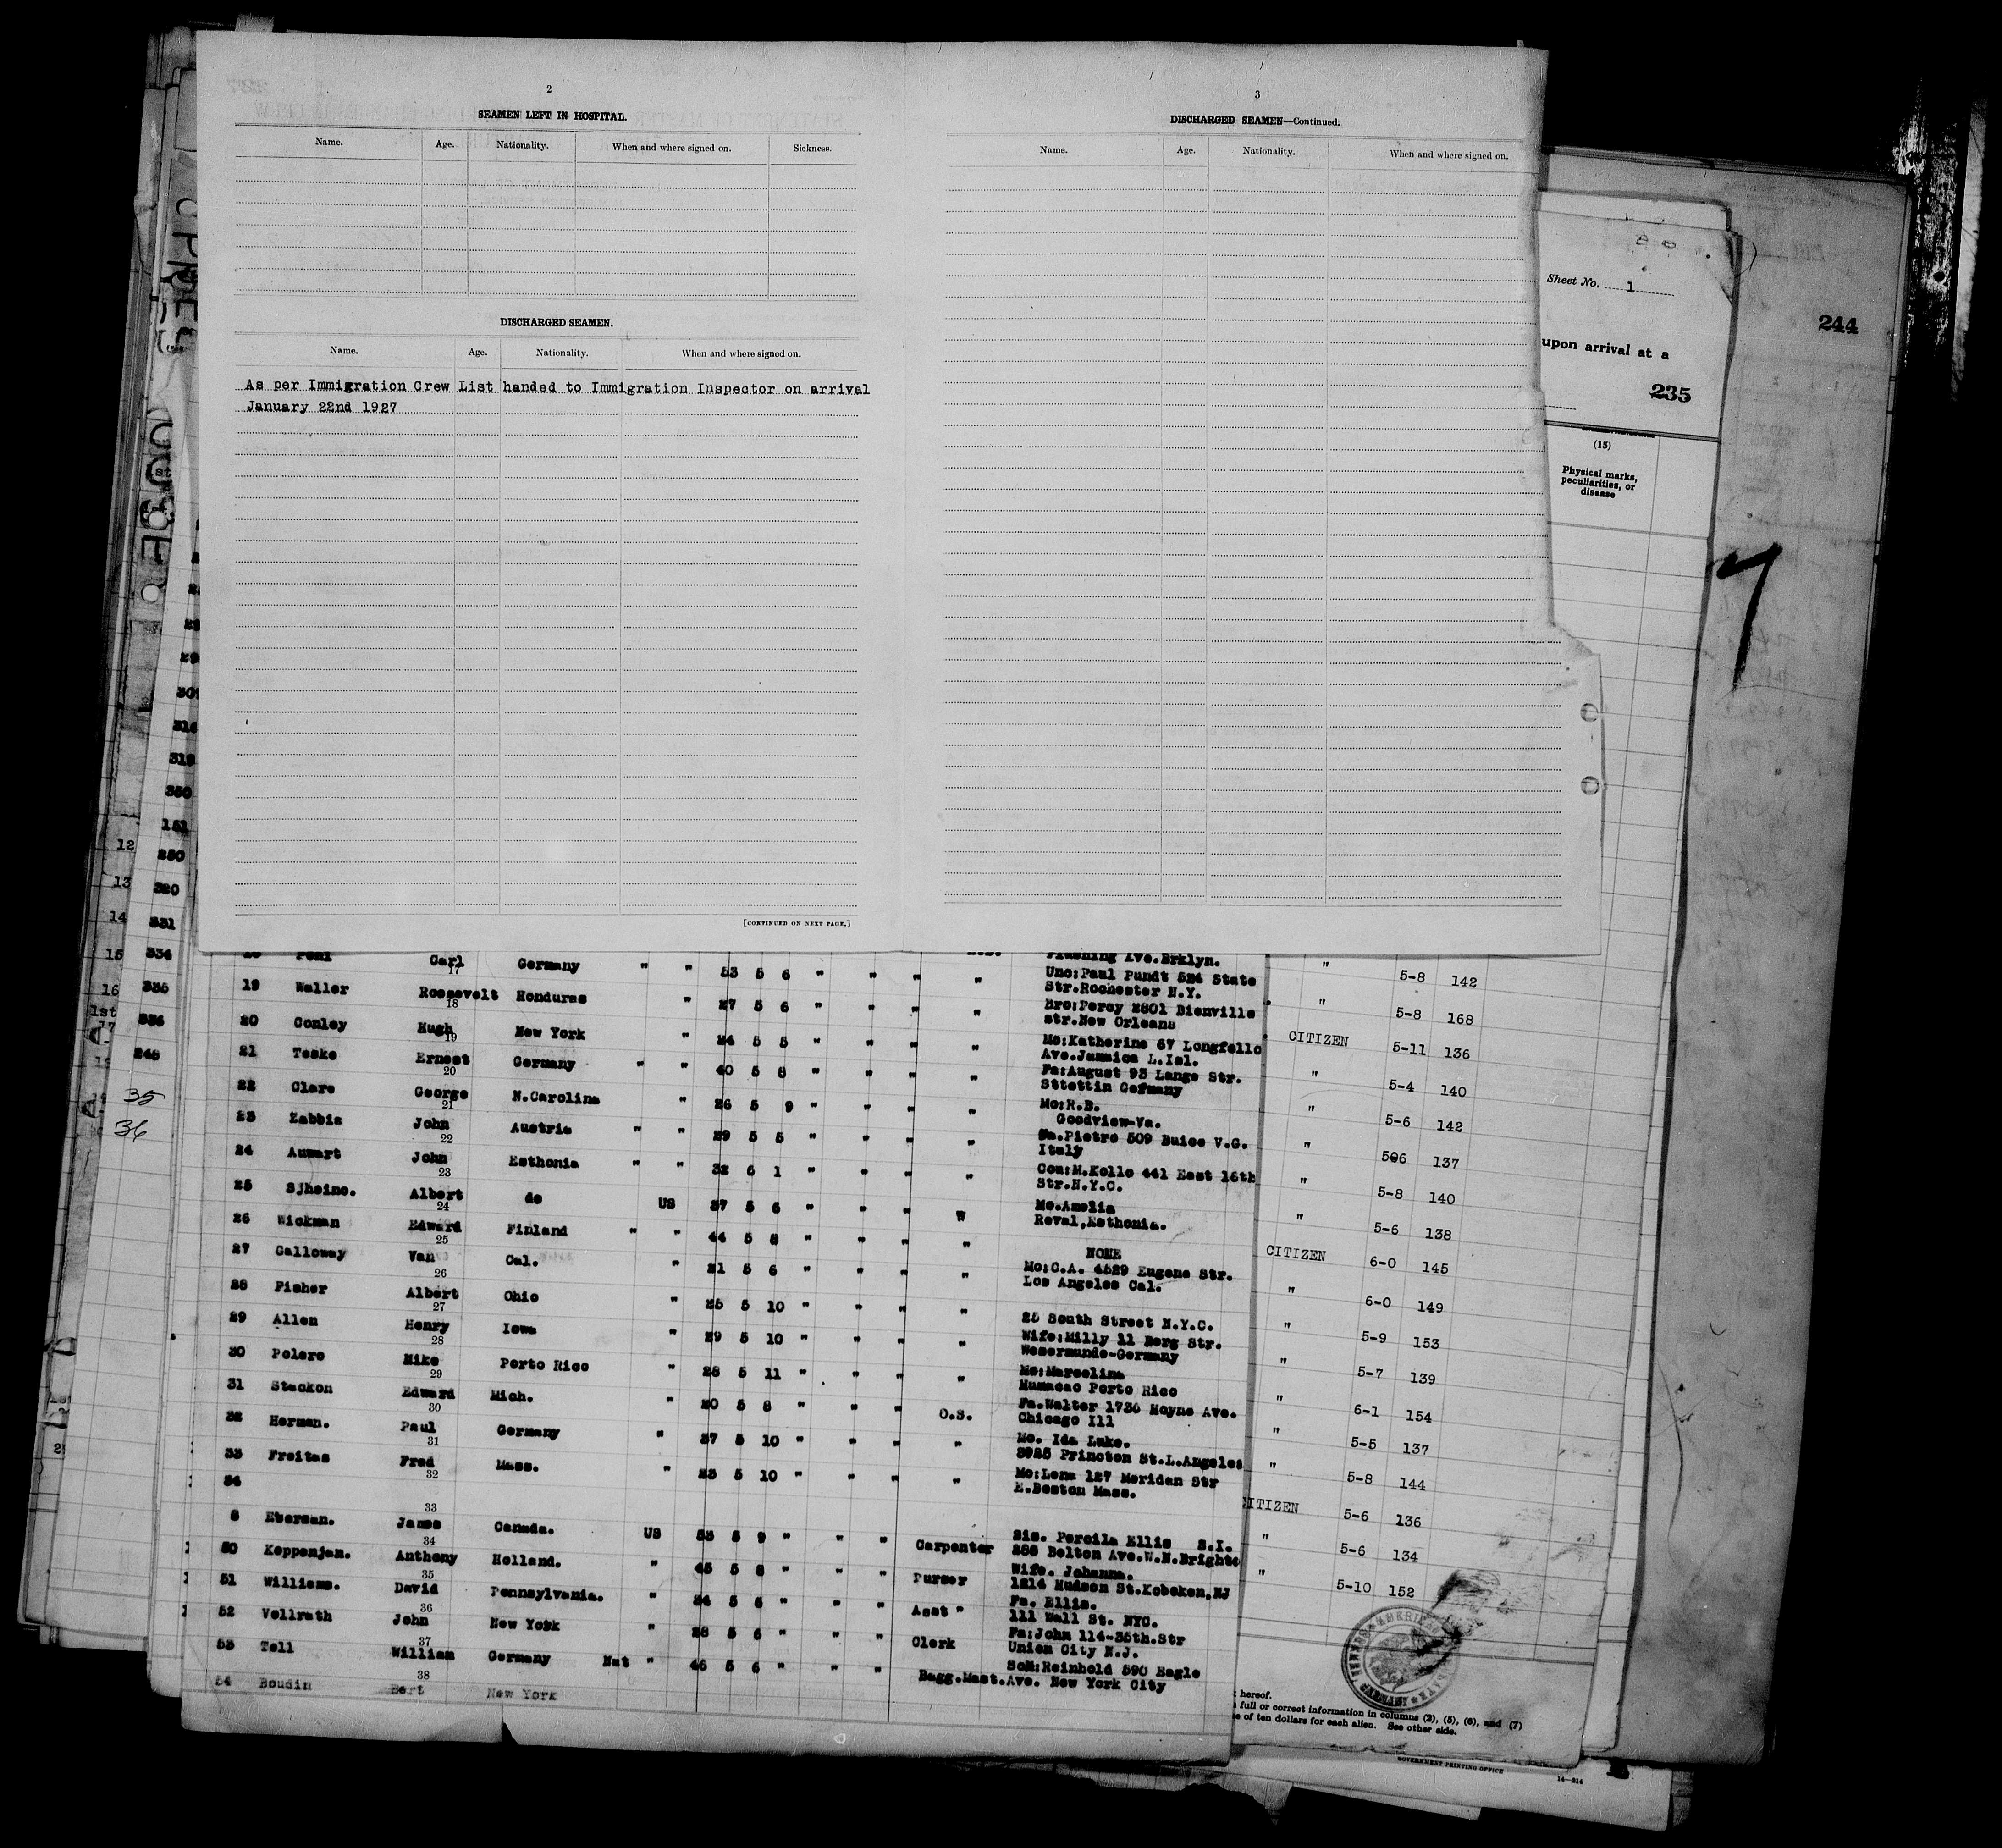 2
SEAMEN LEFT IN HOSPITAL.
Name. Age. Nationality. When and where signed on. Sickness.
DISCHARGED SEAMEN.
Name. Age. Nationality. When and where signed on.
As per Immigration Crew List handed to Immigration Inspector on arrival
January 22nd 1927
[CONTINUED ON NEXT PAGE.]
3
DISCHARGED SEAMEN—Continued.
Name. Age. Nationality. When and where signed on.
Sheet No. 1
244
upon arrival at a
235
(15)
Physical marks,
peculiarities, or
disease
12
13
14
15
16
1st
17
35
36
151
250
320
331
334
335
336
Carl Germany " " 53 5 6 " " " " Flushing Ave.Brklyn.
17
Unc:Paul Pundt 524 State
Str.Rochester N.Y.
19 Waller Roosevelt Honduras " 27 5 6 " " " " Bro:Percy 2801 Bienville
18
str.New Orleans
20 Conley Hugh New York " 24 5 5 " " " " Mo:Katherine 67 Longfello
19
Ave.Jamaica L.Isl.
21 Teske Ernest Germany " " 40 5 8 " " " " Fa:August 93 Lange Str.
20
Sttettin Germany
22 Clare George N.Carolina " 26 5 9 " " " " Mo:R.B.
21
Goodview-Va.
23 Zabbia John Austria " " 29 5 5 " " " " Fa.Pietro 509 Buice V.G.
22
Italy
24 Aumart John Esthonia " " 32 6 1 " " " " Cou:M.Kollo 441 East 16th
23
Str.N.Y.C.
25 Sjheino. Albert do US 37 5 6 " " " W Mo.Amelia
24
Reval,Esthonia.
26 Wickman Edward Finland " " 44 5 8 " " " " NONE
25
27 Galloway Van Cal. " 21 5 6 " " " " Mo:C.A. 4529 Eugene Str.
26
Los Angeles Cal.
28 Fisher Albert Ohio " 25 5 10 " " " " 25 South Street N.Y.C.
27
29 Allen Henry Iowa " 29 5 10 " " " " Wife:Milly 11 Borg Str.
28
Wesermunde-Germany
30 Polero Mike Porto Rico " 28 5 11 " " " " Mo:Marcelina
29
Humacao Porto Rico
31 Stackon Edward Mich. " 20 5 8 " " " O.S. Fa.Walter 1736 Hoyne Ave.
30
Chicago Ill
32 Herman. Paul Germany " 37 5 10 " " " " Mo. Ida Luke.
31
3925 Princton St.L.Angeles
33 Freitas Fred Mass. " 23 5 10 " " " " Mo:Lena 127 Meridan Str
32
E.Boston Mass.
34
33
8 Eberman. James Canada. US 53 5 9 " " " Carpenter Sis. Percila Ellis S.I.
34
286 Belton Ave.W.N.Brighto
50 Keppenjan. Anthony Holland. " 45 5 8 " " " Purser Wife. Johanna.
35
1214 Hudson St.Hoboken,NJ
51 Williams. David Pennsylvania. " 24 5 6 " " " Asst " Fa. Ellis.
36
111 Wall St. NYC.
52 Vollrath John New York " 28 5 6 " " " Clerk Fa:John 114-35th.Str
37
Union City N.J.
53 Tell William Germany Nat " 46 5 6 " " " Bagg.Mast. Son:Reinhold 590 Eagle
38
Ave. New York City
54 Boudin Bert New York
" 5-8 142
" 5-8 168
CITIZEN 5-11 136
" 5-4 140
" 5-6 142
" 506 137
" 5-8 140
" 5-6 138
CITIZEN 6-0 145
" 6-0 149
" 5-9 153
" 5-7 139
" 6-1 154
" 5-5 137
" 5-8 144
CITIZEN 5-6 136
" 5-6 134
" 5-10 152
hereof.
full or correct information in columns (2), (5), (6), and (7)
of ten dollars for each alien. See other side.
GOVERNMENT PRINTING OFFICE
14—214